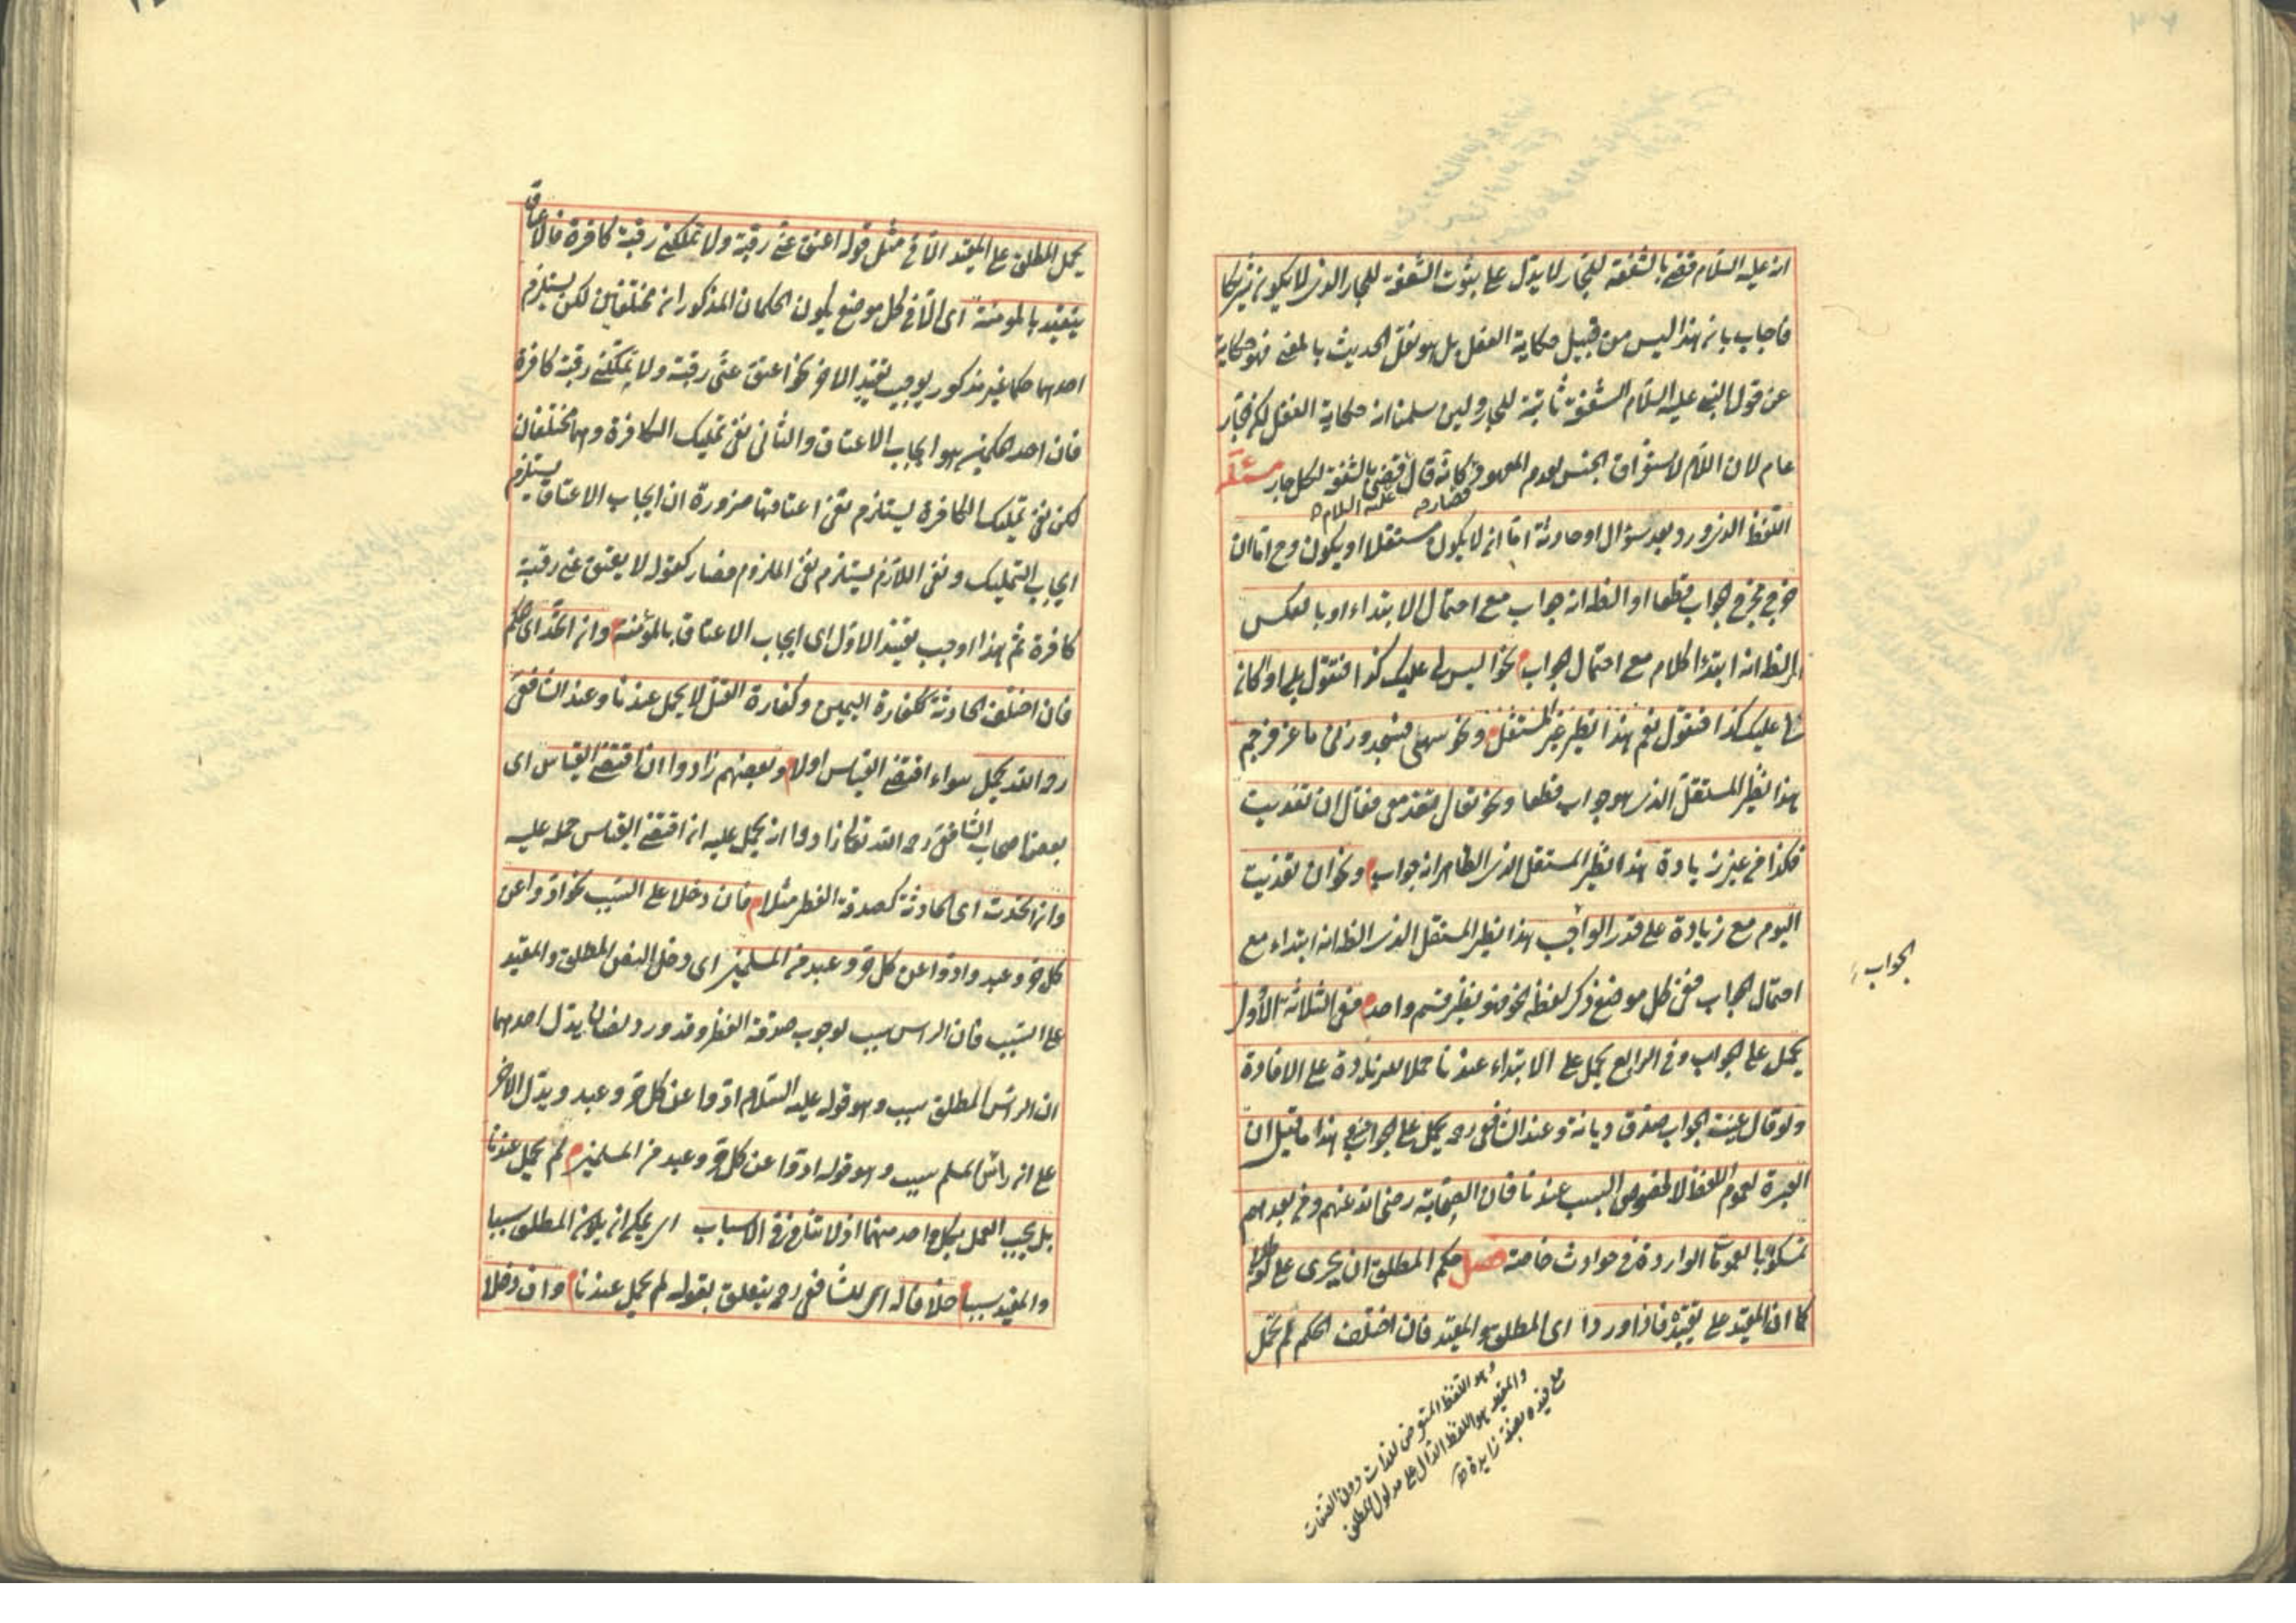 انه عليه السلام قضى بالشفعة للجار لا يدل على ثبوت الشفعة للجار الذى لا يكون شريكا
فاجاب بان هذا ليس من قبيل حكاية الفعل بل هو نقل الحديث بالمعنى فهو حكاية
عن قول النبى عليه السلام الشفعة ثابتة للجار ولئن سلمنا انه حكاية الفعل لكن الجار
عام لان اللام لاستغراق الجنس لعدم المعهود فصار كانه قال قضى عليه السلام بالشفعة لكل جار مسئلة
اللفظ الذى ورد بعد سؤال او حادثة اما ان لا يكون مستقلا او يكون وح اما ان
خرج مخرج الجواب قطعا او الظ انه جواب مع احتمال الابتداء او بالعكس
اى الظ انه ابتداء كلام مع احتمال الجواب نحو اليس لى عليك كذا فتقول بلى او كان
لى عليك كذا فتقول نعم هذا نظير غير المستقل ونحو سهى فسجد وزنى ماعز فرجم
هذا نظير المستقل الذى هو جواب قطعا ونحو تعال تغد معى فقال ان تغديت
فكذا من غير زيادة هذا نظير المستقل الذى الظاهر انه جواب ونحو ان تغديت
اليوم مع زيادة على قدر الواجب هذا نظير المستقل الذى الظ انه ابتداء مع
احتمال الجواب ففى كل موضع ذكر لفظ نحو فهو نظير قسم واحد ففى الثلاثة الاول
يحمل على الجواب وفى الرابع يحمل على الابتداء عندنا حملا للزيادة على الافادة
ولو قال عنيت الجواب صدق ديانة وعند الشافعى رحه يحمل على الجواب هذا ما قيل ان
العبرة لعموم اللفظ لا لخصوص السبب عندنا فان الصحابة رضى الله عنهم ومن بعدهم
تمسكوا بالعمومات الواردة فى حوادث خاصة فصل حكم المطلق ان يجرى على اطلاقه
كما ان المقيد على تقييده فاذا وردا اى المطلق والمقيد فان اختلف الحكم لم يحمل
الجواب
وهو اللفظ المتعرض للذات دون الصفات
والمقيد هو اللفظ الدال على مدلول المطلق
مع قيده بصفة زايدة
يحمل المطلق على المقيد الا فى مثل قوله اعتق عنى رقبة ولا تملكنى رقبة كافرة فالاعتاق
يتقيد بالمومنة اى الا فى كل موضع يكون الحكمان المذكوران مختلفين لكن يستلزم
احدهما حكما غير مذكور يوجب تقييد الاخر نحو اعتق عنى رقبة ولا تملكنى رقبة كافرة
فان احد الحكمين هو ايجاب الاعتاق والثانى نفى تمليك الكافرة وهما مختلفان
لكن نفى تمليك الكافرة يستلزم نفى اعتاقها ضرورة ان ايجاب الاعتاق يستلزم
ايجاب التمليك ونفى اللازم يستلزم نفى الملزوم فصار كقوله لا يعتق عنى رقبة
كافرة ثم هذا اوجب تقييد الاول اى ايجاب الاعتاق بالمؤمنة وان اتحد اى الحكم
فان اختلف الحادثة ككفارة اليمين وكفارة القتل لا يحمل عندنا وعند الشافعى
رحه الله يحمل سواء اقتضى القياس اولا وبعضهم زادوا ان اقتضى القياس اى
بعض اصحاب الشافعى رحه الله تعالى زادوا انه يحمل عليه ان اقتضى القياس حمله عليه
وان اتحدت اى الحادثة كصدقة الفطر مثلا فان دخلا على السبب نحو ادوا عن
كل حر وعبد وادوا عن كل حر وعبد من المسلمين اى دخل النص المطلق والمقيد
على السبب فان الراس سبب لوجوب صدقة الفطر وقد ورد نصان يدل احدهما
ان الراس المطلق سبب وهو قوله عليه السلام ادوا عن كل حر وعبد ويدل الاخر
على ان راس المسلم سبب وهو قوله ادوا عن كل حر وعبد من المسلمين لم يحمل عندنا
بل يجب العمل بكل واحد منهما اذ لا تنافى فى الاسباب اى يمكن ان يكون المطلق سببا
والمقيد سببا خلافا له اى للشافعى رحه يتعلق بقوله لم يحمل عندنا وان دخلا